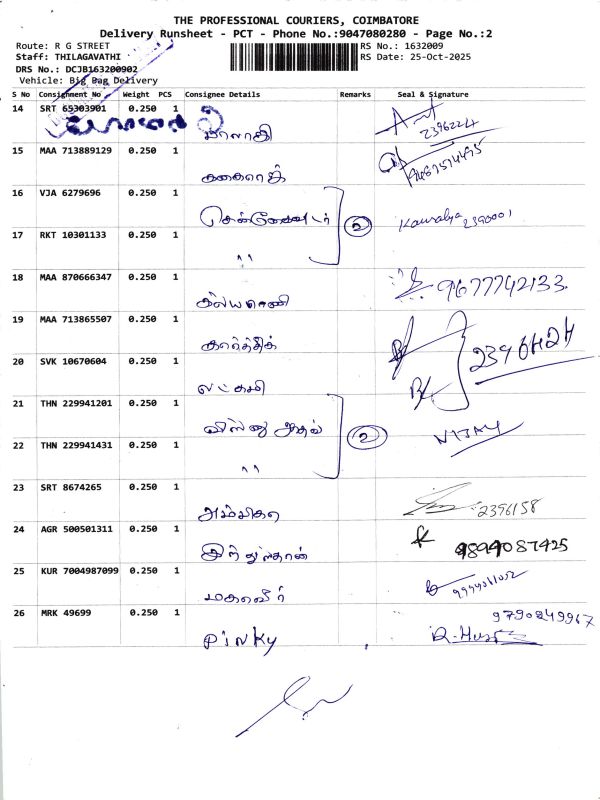 THE PROFESSIONAL COURIERS, COIMBATORE
Delivery Runsheet - PCT - Phone No.:9047080280 - Page No.:2
Route: R G STREET
RS No.: 1632009
Staff: THILAGAVATHI
RS Date: 25-Oct-2025
DRS No.: DCJB163200902
Vehicle: Big Bag Delivery
S No Consignment No Weight PCS Consignee Details Remarks Seal & Signature
14 SRT 65303901 0.250 1
பாலாஜி 2396224
15 MAA 713889129 0.250 1
16 VJA 6279696 0.250 1
2 Kausalya 2390001
17 RKT 10301133 0.250 1
"
18 MAA 870666347 0.250 1
9677742133
19 MAA 713865507 0.250 1
கார்த்திக்
20 SVK 10670604 0.250 1
லட்சுமி
21 THN 229941201 0.250 1
2 VIJAY
22 THN 229941431 0.250 1
"
23 SRT 8674265 0.250 1
அம்பிகா 2396158
24 AGR 500501311 0.250 1
இந்துஸ்தான் 9894087425
25 KUR 7004987099 0.250 1
மகாவீர்
26 MRK 49699 0.250 1
9790249967
Pinky